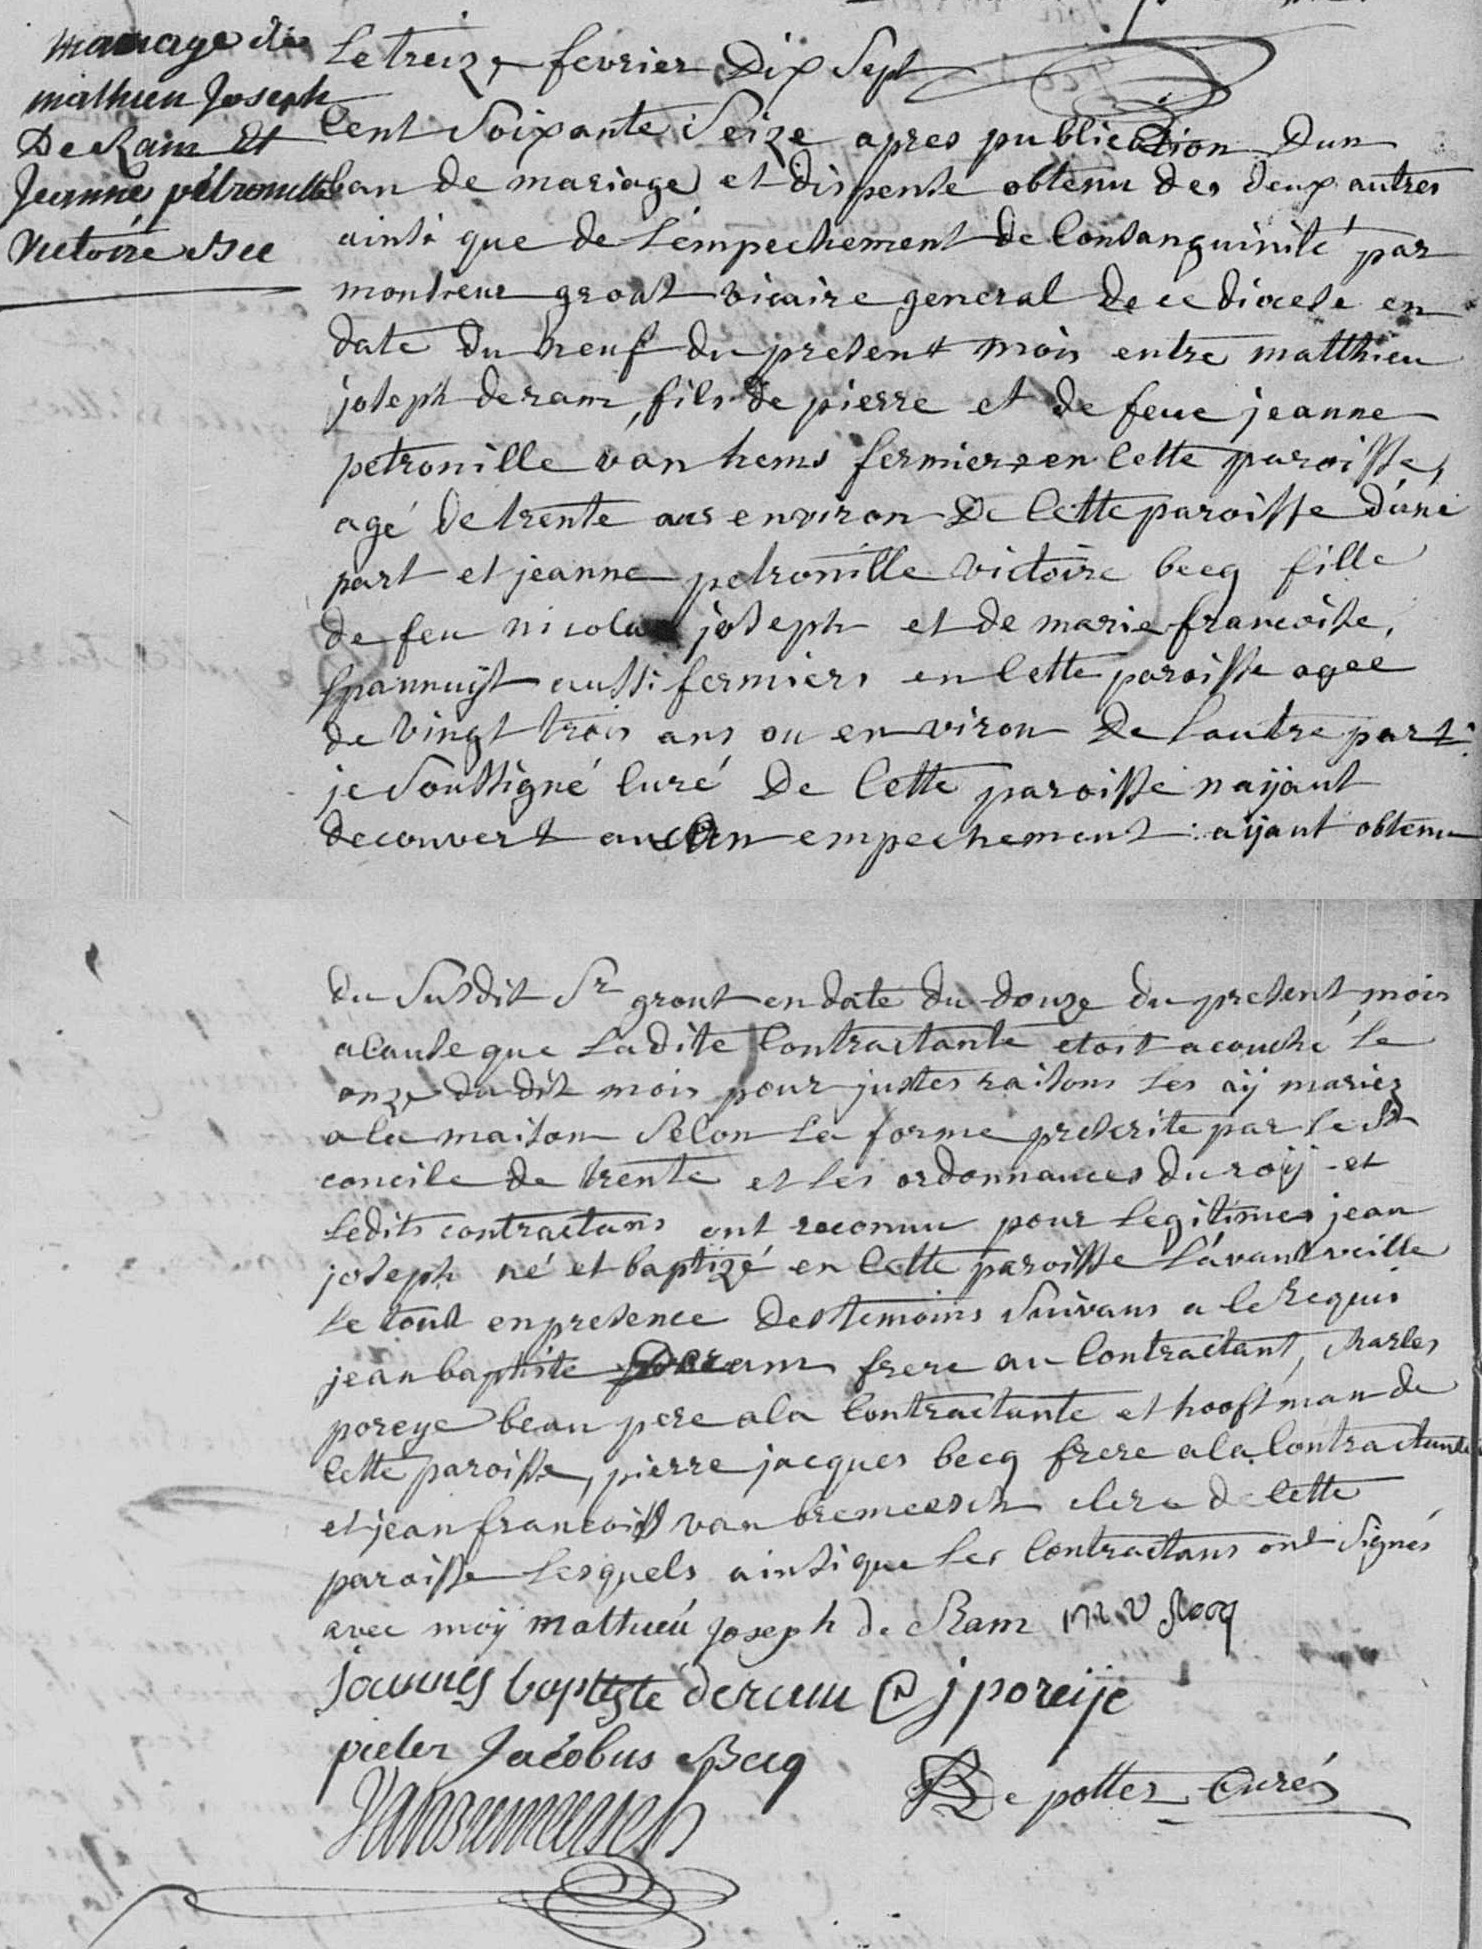 mariage de
mathieu Joseph
De Ram Et
Jeanne pétronille
Victoire Bec
Le treize fevrier Dix Sept
Cent Soixante Seize apres publication Dun
ban de mariage et dispense obtenu des deux autres
ainsi que de L'empechement de Consanguinité par
monsieur groat vicaire general De ce diocese en
date Du neuf du present mois entre matthieu
joseph deram, fils de pierre et de feue jeanne
petronille van hems fermiers en Cette paroisse,
agé de trente ans environ De Cette paroisse D'une
part et jeanne petronille victoire becq fille
de feu nicolas joseph et de marie francoise,
spannuijt aussi fermiers en Cette paroisse agee
de vingt trois ans ou environ De Lautre part:
je Soussigné Curé De Cette paroisse naijant
decouvert aucun empechement: aijant obtenu
du Susdit Sr grout en date du douze du present mois
a Cause que Ladite Contractante etoit acouché Le
onze du dit mois pour justes raisons Les aij mariez
a la maison Selon La forme prescrite par Le St
concile de trente et les ordonnances du roij et
Ledits contractans ont reconnu pour Legitimes jean
joseph né et baptizé en Cette paroisse L'avantveille
Le tout en presence Des temoins Suivans a le requis
jean baptiste deram frere au Contractant, Charles
poreye beau pere a la Contractante et hooftman de
Cette paroisse, pierre jacques becq frere a la Contractante
et jean francois van bremeersch clerc de Cette
paroisse Lesquels ainsi que Les Contractans ont Signés
avec moij mathieu Joseph de Ram
joannes baptiste deram j poreije
pieter Jacobus Becq
De potter Curé
Vanbremeersch